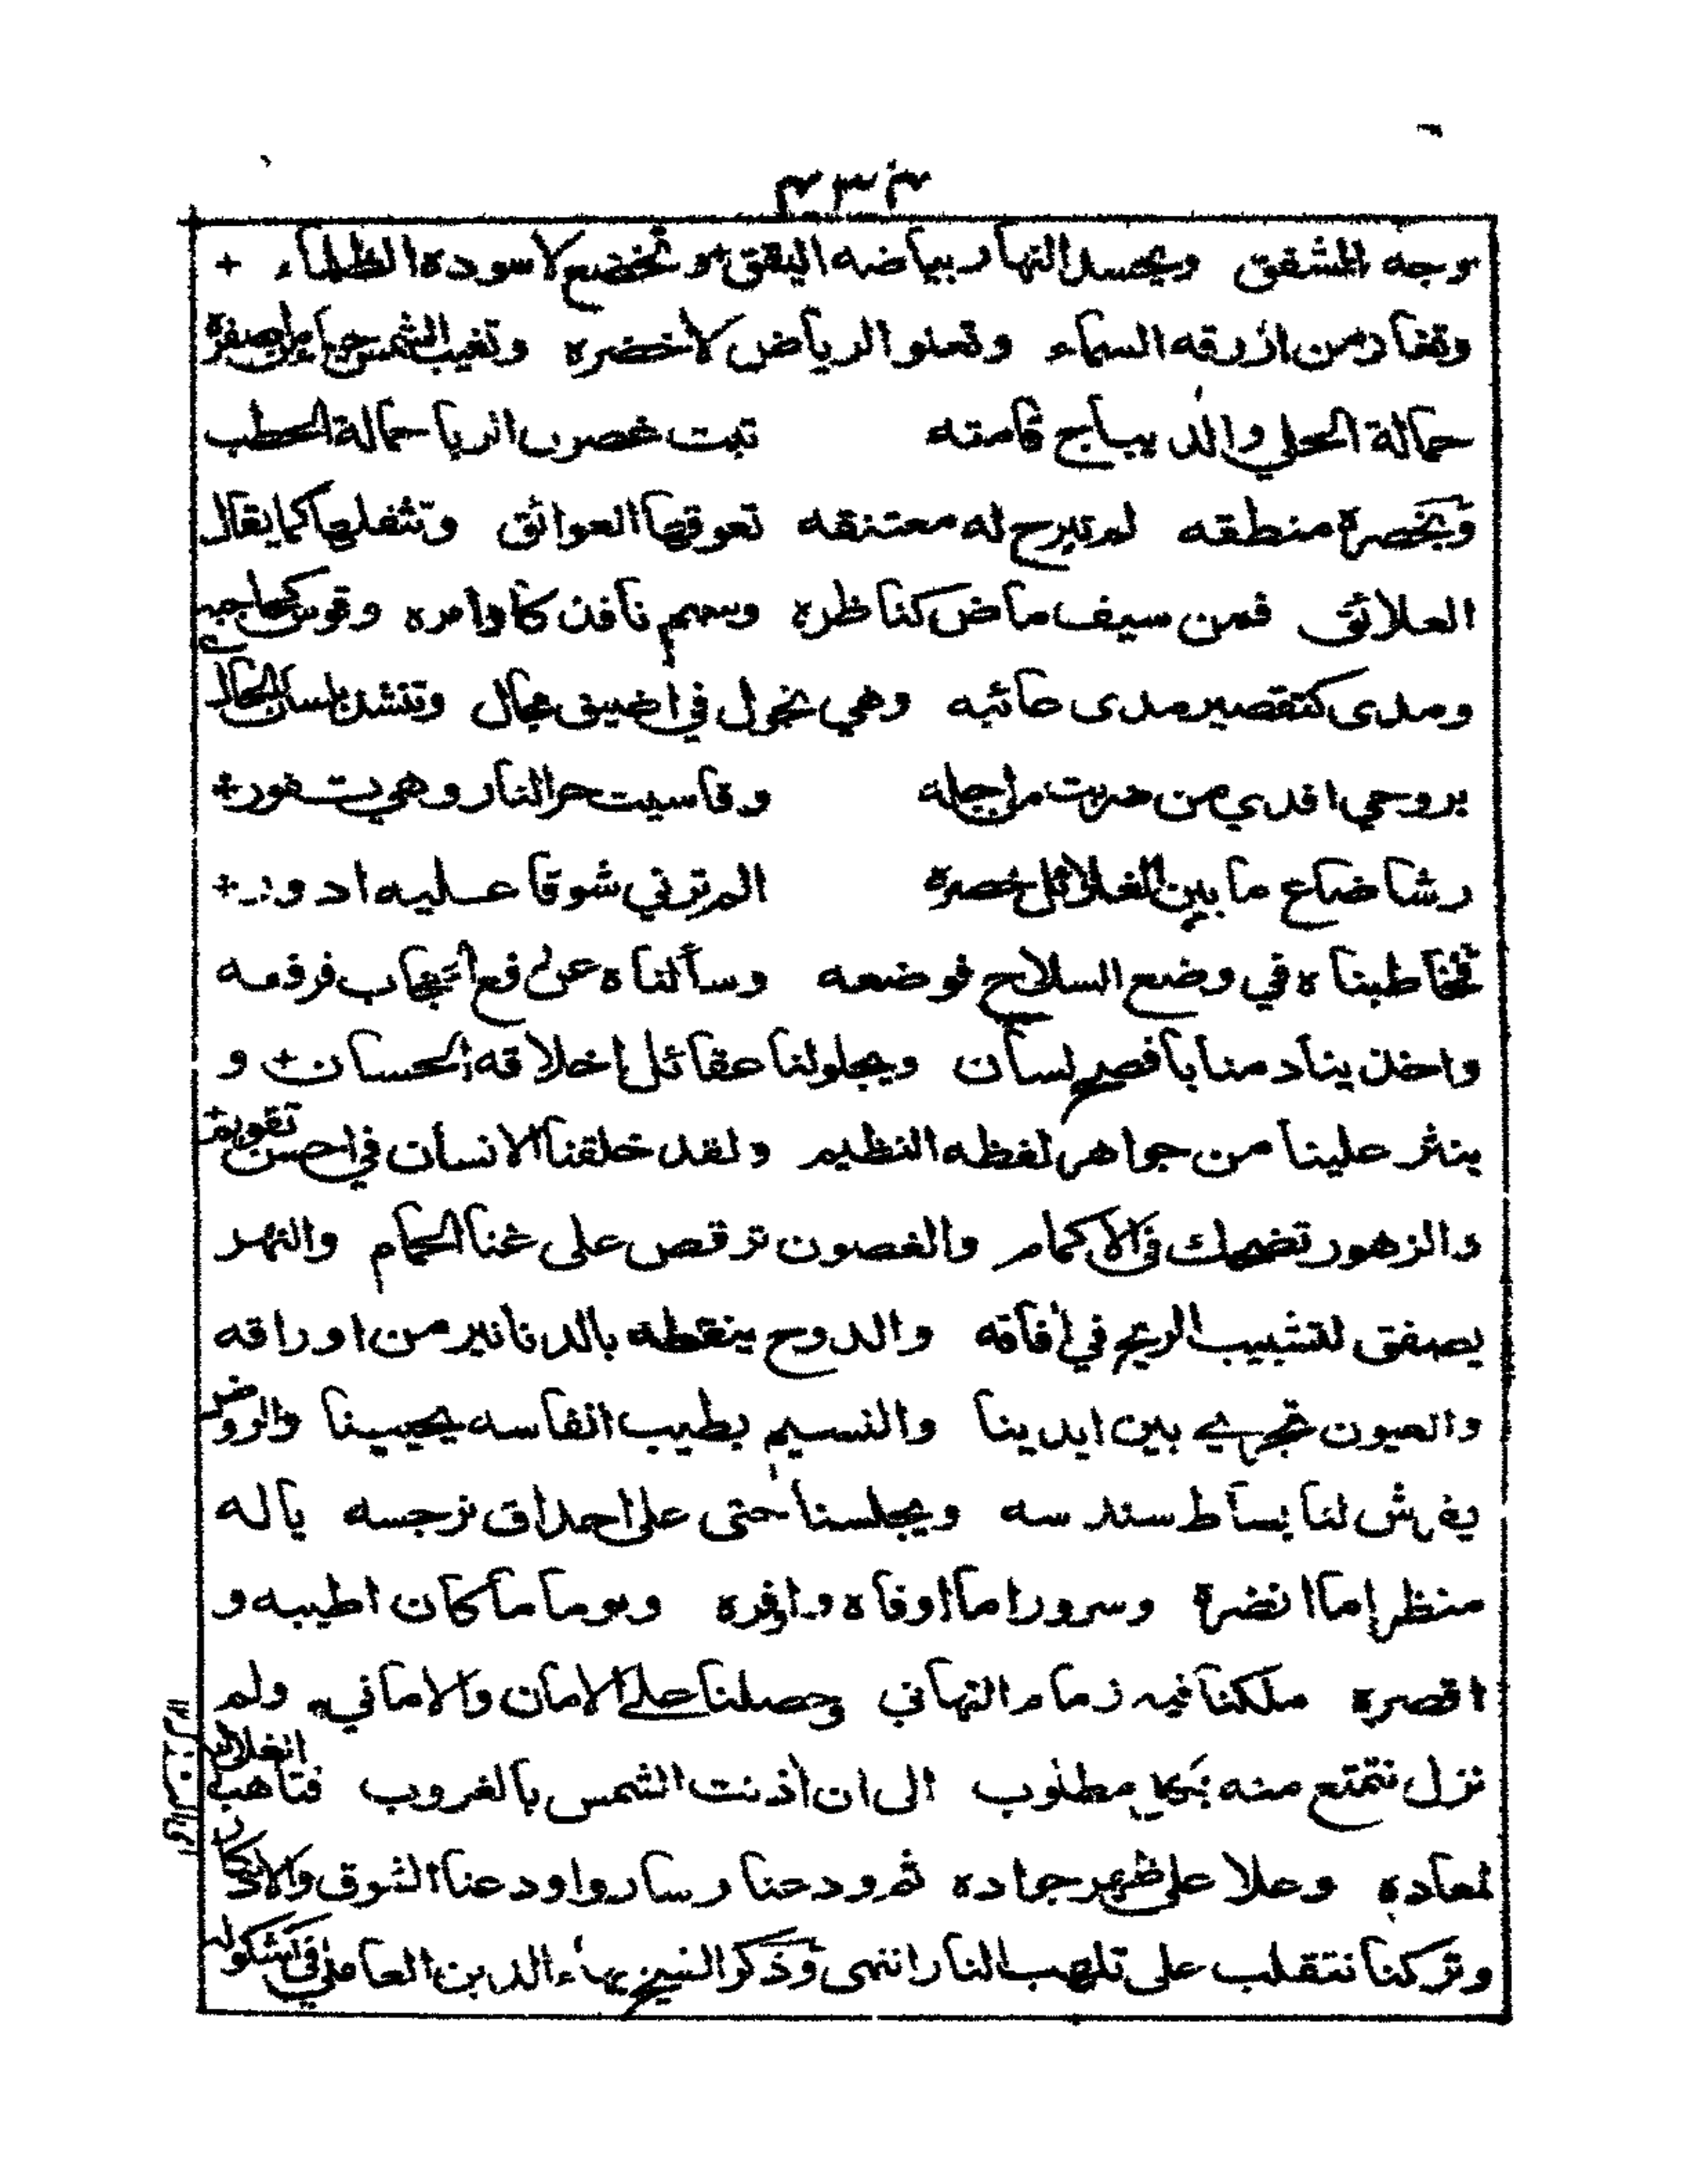 وجه الشفق ويحسد النهار بياضه اليقق وتخضع لاسوده الظلماء
وتغار من ازرقه السماء وتعنو الرياض لاخضره وتغيب الشمس حيا من اصفره
حمالة الحلي والديباج قامته تبت غصون الربا حمالة الحطب
وبخصره منطقه لم تبرح له معتنقه تعوقها العوائق وتثقلها كما يقال
العلائق فمن سيف ماض كناظره وسهم نافذ كاوامره وقوس كحاجبه
ومدى كتقصير مدى عائبه وهي تجول في اضيق مجال وتنشد بلسان الحال
بروحي افدي من ضربت من اجله وقاسيت حر النار وهي تفور
رشا ضاع ما بين الغلائل خصره الم ترني شوقا عليه ادور
فخاطبناه في وضع السلاح فوضعه وسألناه عن رفع الحجاب فرفعه
واخذ ينادمنا بافصح لسان ويجلو لنا عقائل اخلاقه الحسان و
ينثر علينا من جواهر لفظه النظيم ولقد خلقنا الانسان في احسن تقويم
والزهور تضحك في الاكمام والغصون ترقص على غنا الحمام والنهر
يصفق لتشبيب الريح في افاقه والدوح ينقطه بالدنانير من اوراقه
والعيون تجري بين ايدينا والنسيم بطيب انفاسه يحيينا والروض
يفرش لنا بساط سندسه ويجلسنا حتى على احداق نرجسه ياله
منظر اما انضره وسرورا ما اوفاه واوفره ويوما ما كان اطيبه و
اقصره ملكنا فيه زمام التهاني وحصلنا على الامان والاماني ولم
نزل نتمتع منه بكل مطلوب الى ان اذنت الشمس بالغروب فتاهب
لمعاده وعلا على ظهر جواده ثم ودعنا وسار واودعنا الشوق والاذكار
وتركنا نتقلب على تلهب النار انتهى وذكر الشيخ بهاء الدين العاملي في كشكوله